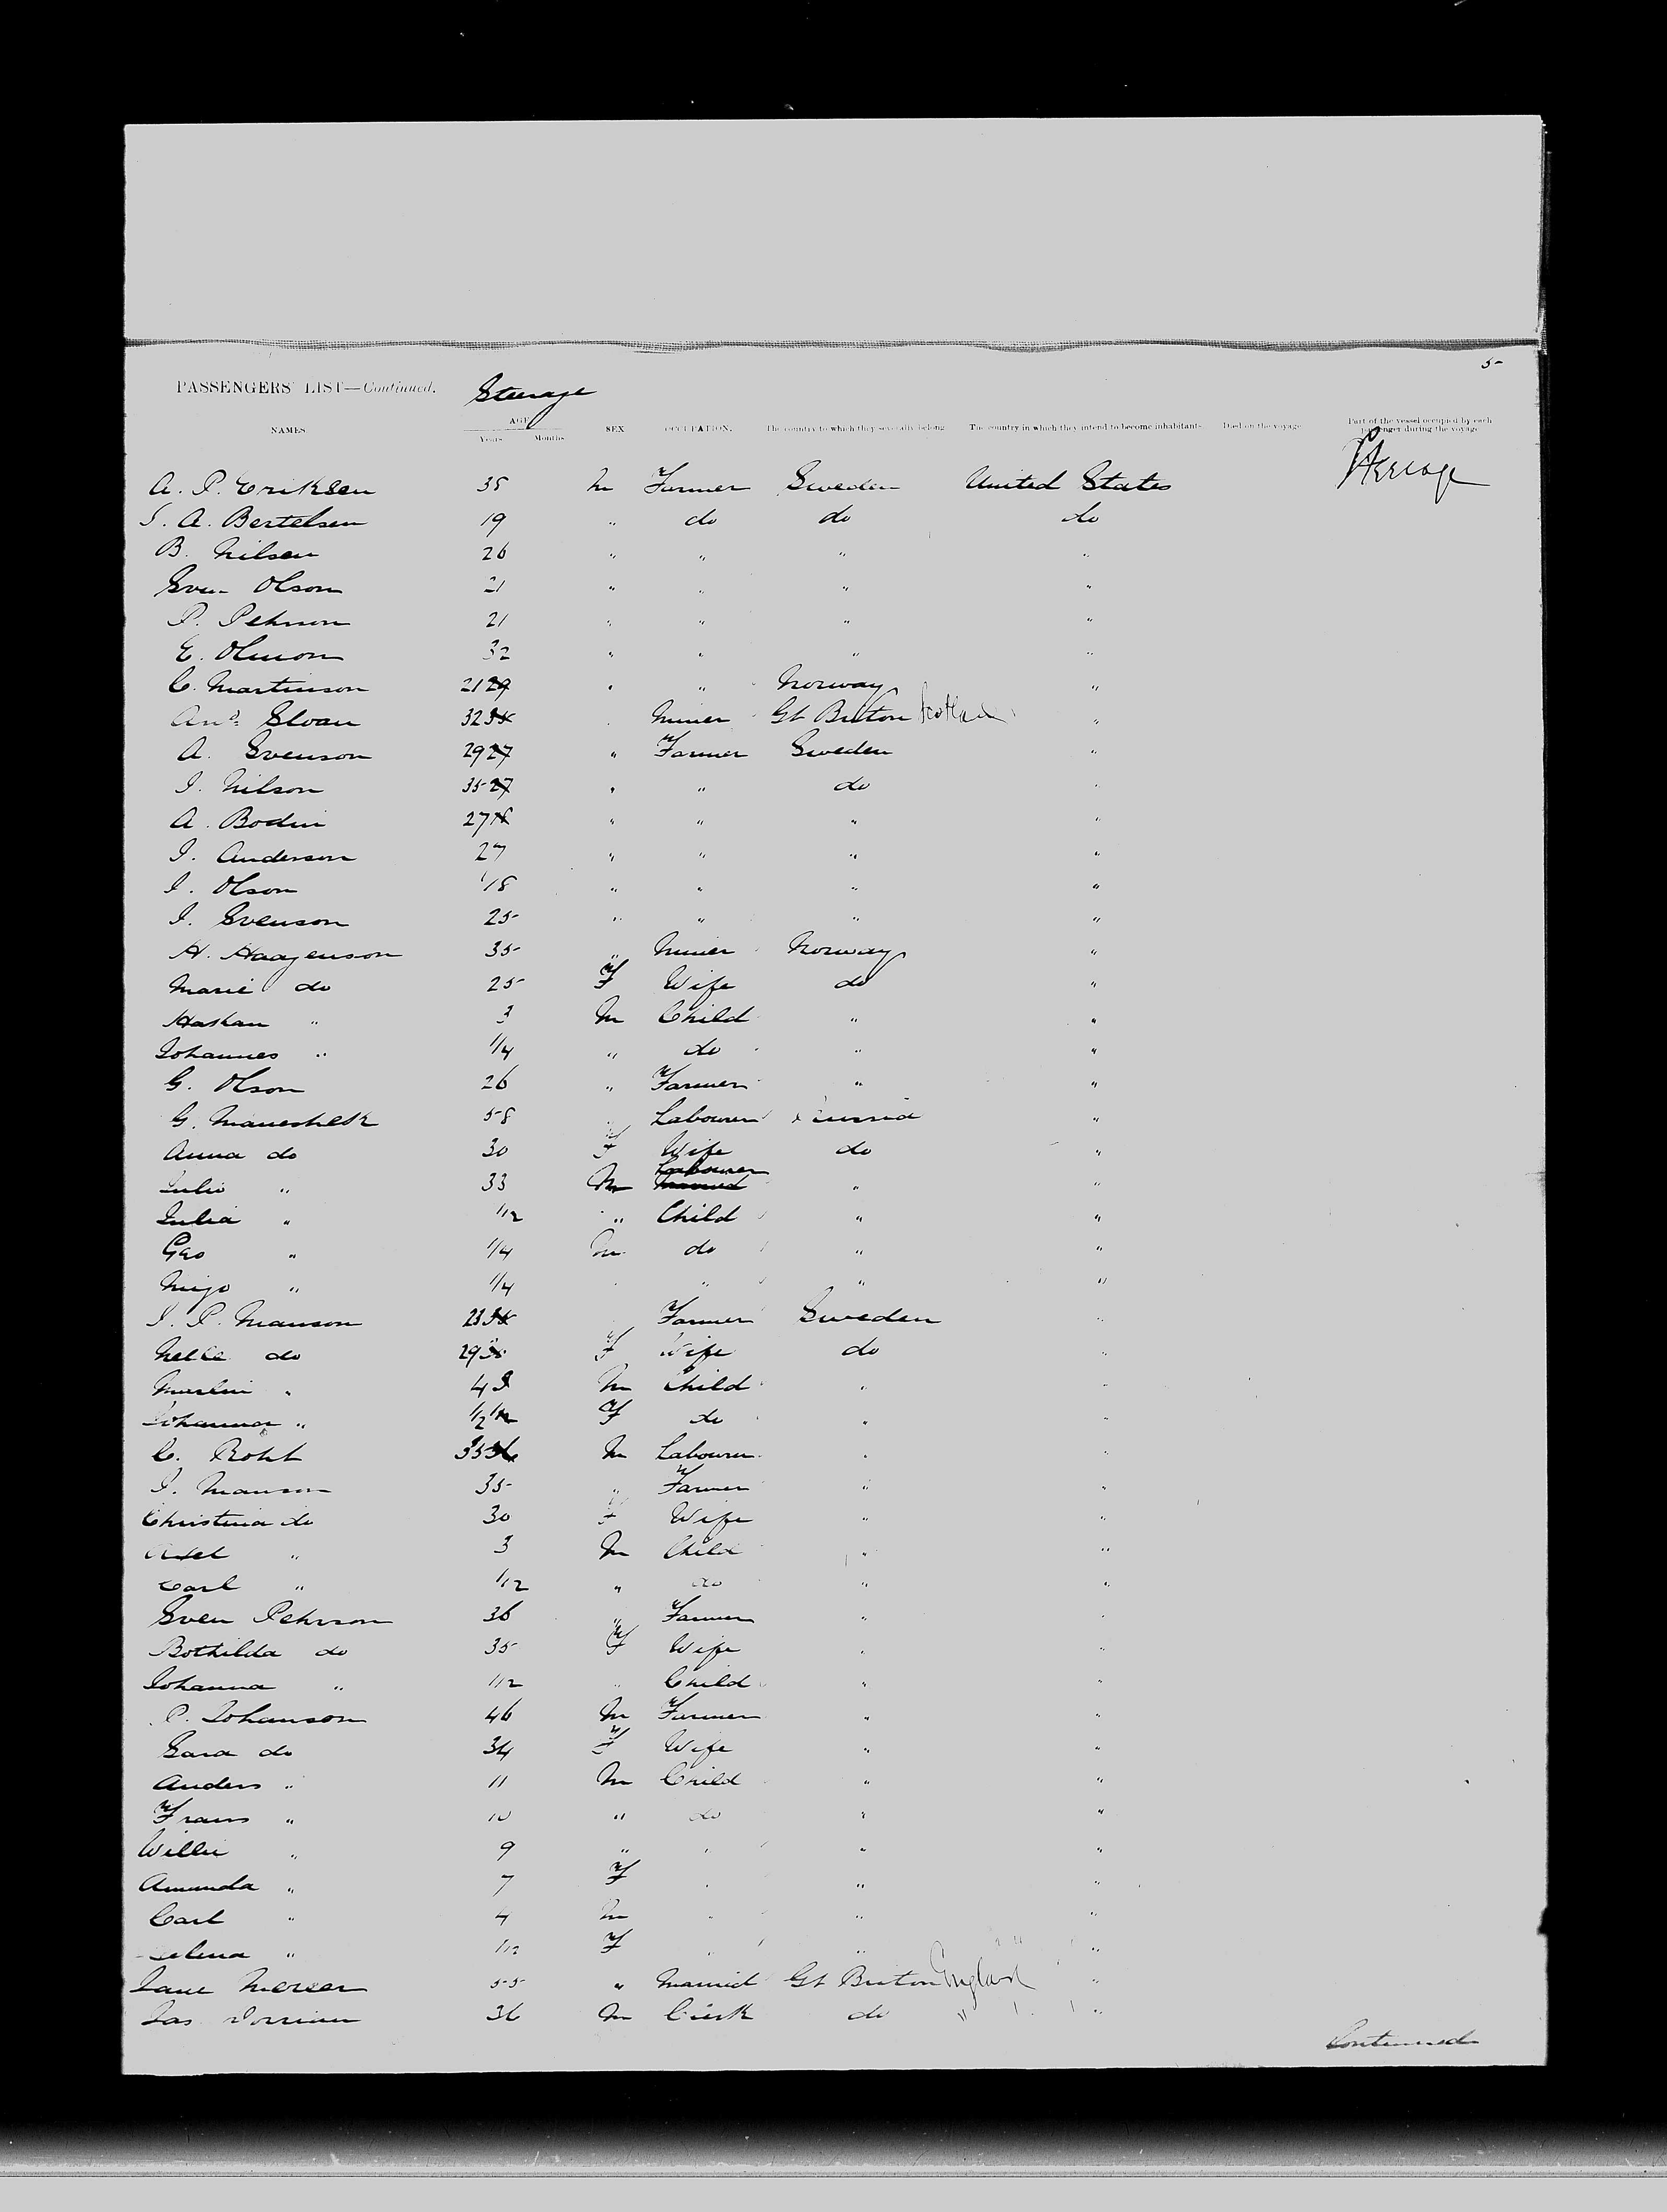 5-
PASSENGERS' LIST—Continued. Steerage
NAMES AGE Years Months SEX OCCUPATION. The country to which they severally belong The country in which they intend to become inhabitants Died on the voyage Part of the vessel occupied by each passenger during the voyage
A. P. Eriksen 35 M Farmer Sweden United States Steerage
S. A. Bertelsen 19 " do do do
B. Nilsen 26 " " " "
Sven Olson 21 " " " "
P. Pehrson 21 " " " "
E. Olsson 32 " " " "
C. Martinson 21 29 " " Norway "
And. Sloan 32 Miner Gt Briton Scotland "
A. Svenson 29 27 " Farmer Sweden "
I. Nilson 35 27 " " do "
A. Bodin 27 " " " "
I. Anderson 27 " " " "
I. Olson 18 " " " "
I. Svenson 25 " " " "
H. Haagenson 35 " Miner Norway "
Marie do 25 F Wife do "
Haskan " 3 M Child " "
Johannes " 1/4 " do " "
G. Olson 26 " Farmer " "
G. 58 Labourer "
Anna do 30 F Wife do "
Julio " 33 M Labourer " "
Julia " 1/12 " Child " "
Geo " 1/4 M do " "
" 1/4 " " "
I. P. Manson 23 Farmer Sweden "
Nelle do 29 F Wife do "
" 4 3 M Child " "
Johanna " 1/2 F do " "
C. 35 36 M Labourer " "
I. Manson 35 " Farmer " "
Christina do 30 F Wife " "
Axel " 3 M Child " "
Carl " 1/12 " do " "
Sven Pehrson 36 " Farmer " "
Bothilda do 35 F Wife " "
Johanna " 1/12 " Child " "
P. Johanson 46 M Farmer " "
Sara do 34 F Wife " "
Anders " 11 M Child " "
Frans " 10 " do " "
Willie " 9 " " " "
Amanda " 7 F " " "
Carl " 4 M " " "
" 1/12 F " " "
Jane Mercer 55 " Married Gt Briton England "
Jas Dorrian 36 M Clerk do " "
Continued